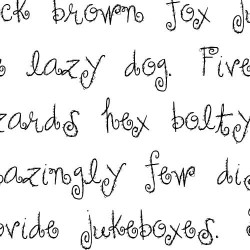 ck brown fox ju
lazy dog. Five
zards hex bolty
azingly few di
ovide jukeboxes.